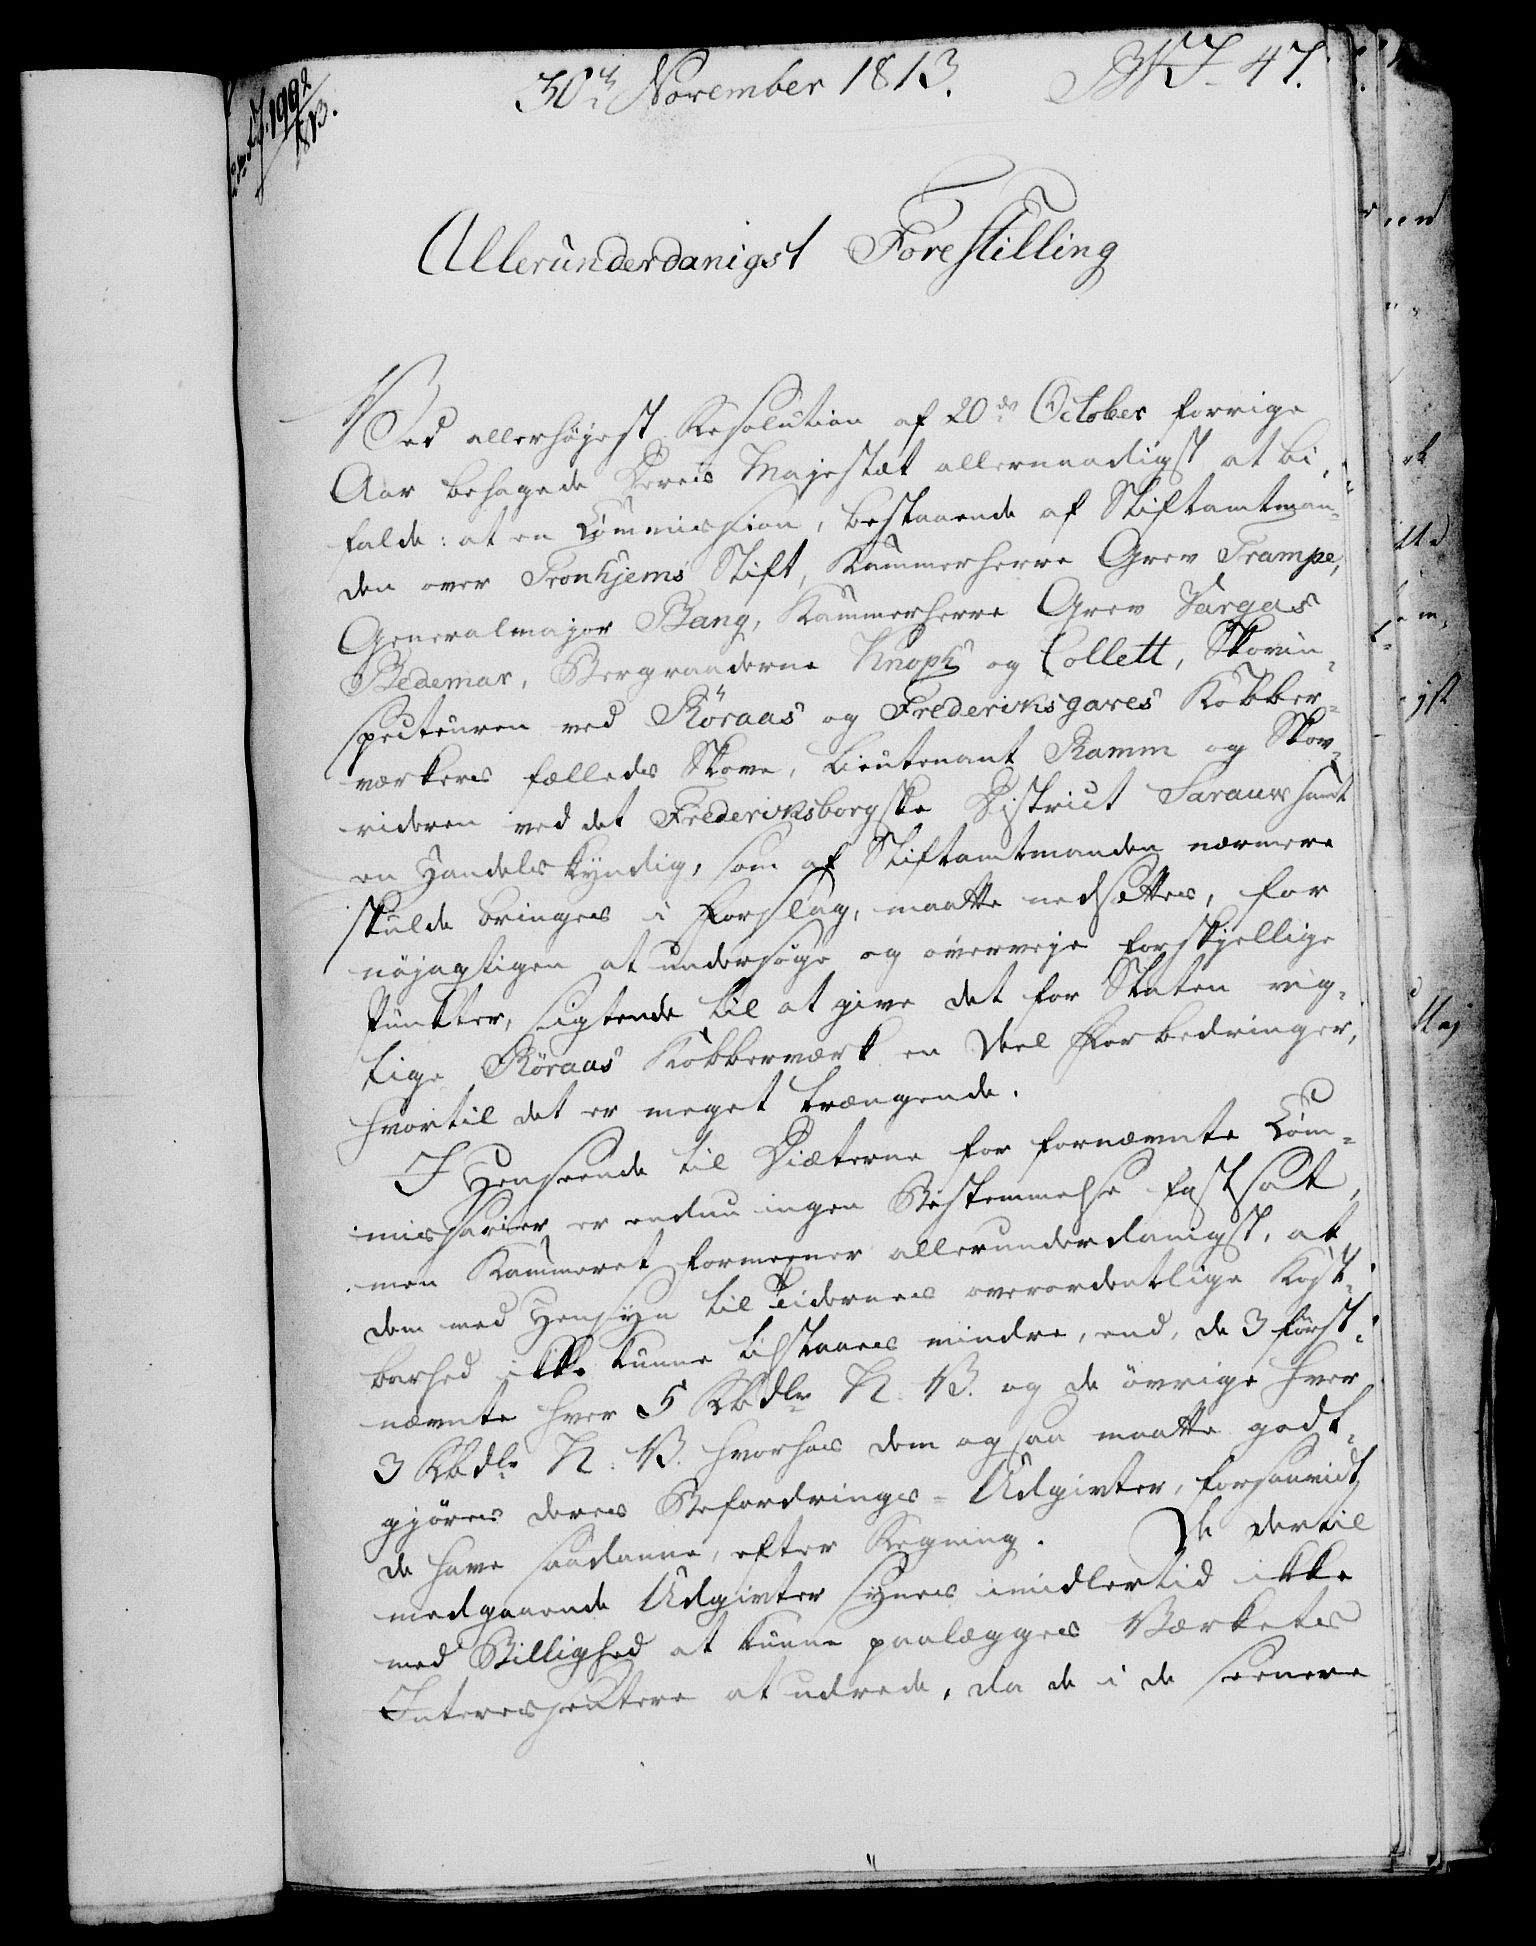 30te November 1813.
47.
1992
1813.
Allerunderdanigst Forestilling
Ved allerhøjest Resolution af 20de October forrige
Aar behagede Deres Majestæt allernaadigst at bi„
falde: at en Commission, bestaaende af Stiftamtman„
den over Tronhjems Stift, Kammerherre Grev Trampe,
Generalmajor Bang, Kammerherre Grev Vargas
Bedemar, Bergraaderne Knoph og Collett, Skovin„
specteuren ved Röraas og Frederiksgaves Kobber„
værkers fælleds Skove, Lieutenant Ramm og Skov„
rideren ved det Frederiksborgske District Sarauw samt
en Handelskyndig, som af Stiftamtmanden nærmere
skulde bringes i Forslag, maatte nedsættes, for
nöjagtigen at undersöge og overveje forskjellige
Punkter, sigtende til at give det for Staten vig„
tige Röraas Kobberværk en Deel Forbedringer,
hvortil det er meget trængende.
I Henseende til Diæterne for fornævnte Com„
missarier er endnu ingen Bestemmelse fastsat,
men Kammeret formeener allerunderdanigst, at
dem med Hensyn til Tidernes overordentlige Kost„
barhed ikke kunne tilstaaes mindre, end, de 3 först„
nævnte hver 5 Rbdlr N. V. og de övrige hver
3 Rbdlr N. V. hvorhos dem ogsaa maatte godt„
gjöres deres Befordrings-Udgivter, forsaavidt
de have saadanne, efter Regning. De dertil
medgaaende Udgivter synes imidlertid ikke
med Billighed at kunne paalægges Værkets
Interessentere at udrede, da de i de seenere